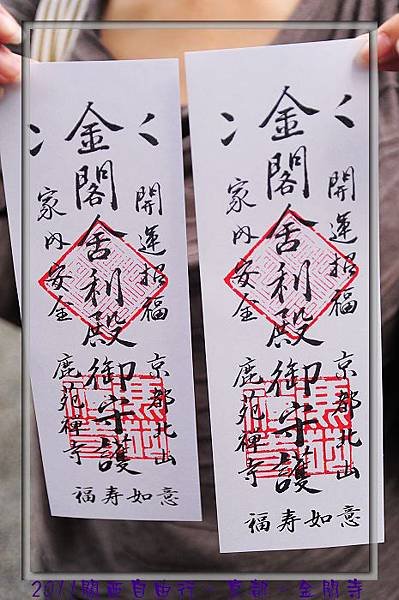 開運招福
金閣舎利殿御守護
家内安全
京都北山
鹿苑禅寺
福寿如意
開運招福
金閣舎利殿御守護
家内安全
京都北山
鹿苑禅寺
福寿如意
2011關西自由行-京都-金閣寺